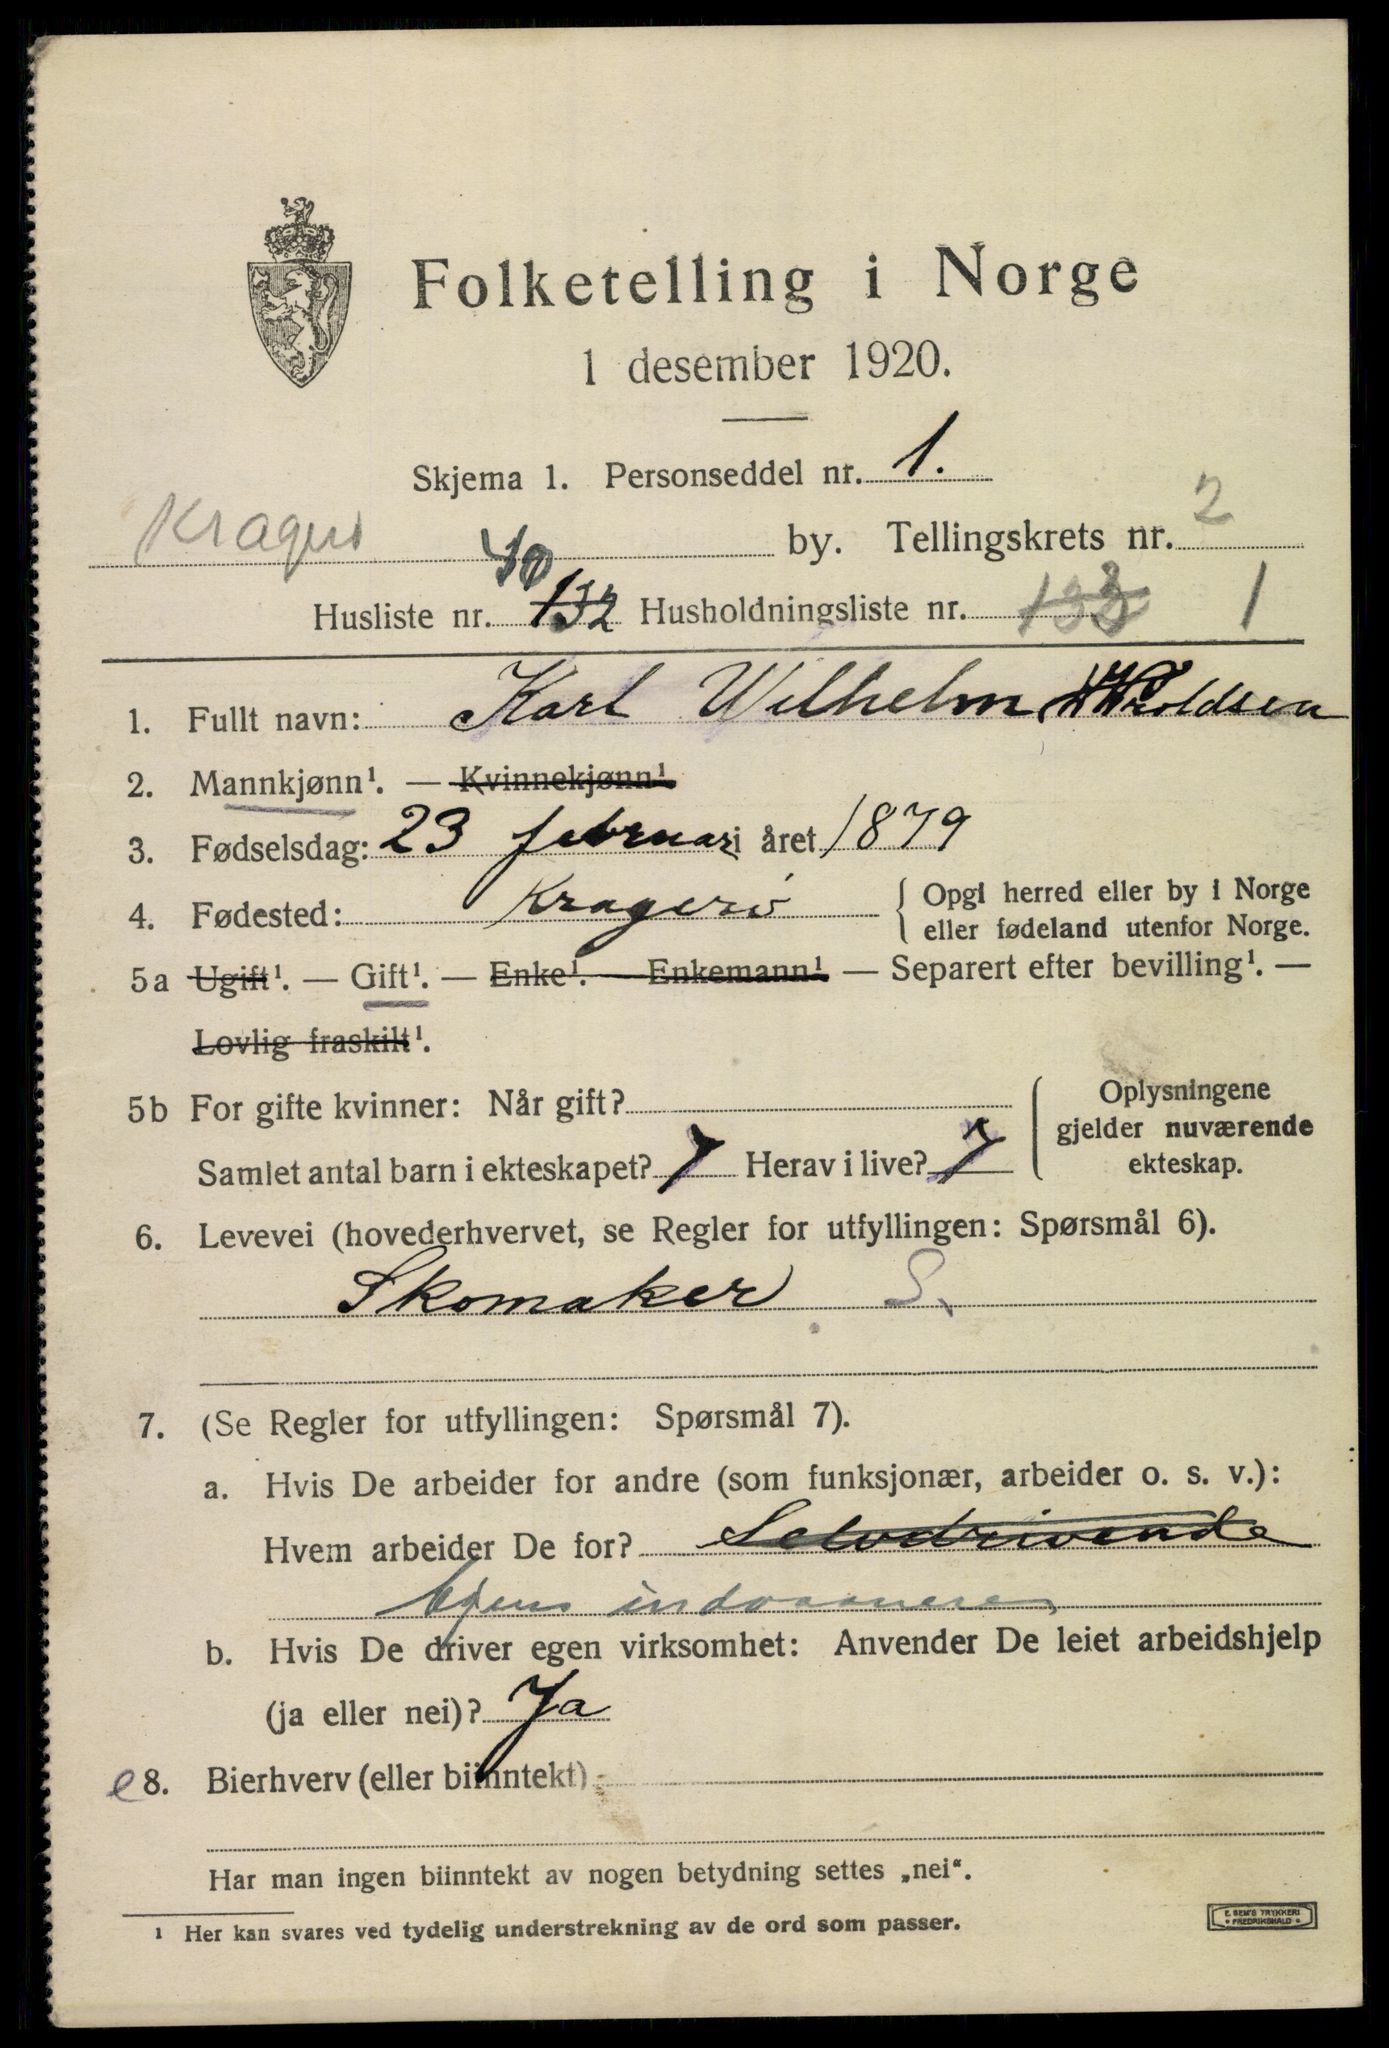 Folketelling i Norge
1 desember 1920.
Skjema 1. Personseddel nr. 1.
Kragerø by. Tellingskrets nr. 2
Husliste nr. 40 132 Husholdningsliste nr. 133 1
1. Fullt navn: Karl Wilhelm Haroldsen
2. Mannkjønn¹. — Kvinnekjønn¹
3. Fødselsdag: 23 februar i året 1879
4. Fødested: Kragerø { Opgi herred eller by i Norge
eller fødeland utenfor Norge.
5a Ugift¹. — Gift¹. — Enke¹. — Enkemann¹ — Separert efter bevilling¹. —
Lovlig fraskilt¹.
5b For gifte kvinner: Når gift? { Oplysningene
gjelder nuværende
Samlet antal barn i ekteskapet? 7 Herav i live? 7 ekteskap.
6. Levevei (hovederhvervet, se Regler for utfyllingen: Spørsmål 6).
Skomaker S.
7. (Se Regler for utfyllingen: Spørsmål 7).
a. Hvis De arbeider for andre (som funksjonær, arbeider o. s. v.):
Hvem arbeider De for? Selvdrivende
b. Hvis De driver egen virksomhet: Anvender De leiet arbeidshjelp
(ja eller nei)? Ja
e 8. Bierhverv (eller biinntekt)
Har man ingen biinntekt av nogen betydning settes „nei“.
¹ Her kan svares ved tydelig understrekning av de ord som passer.
E. SEM'S TRYKKERI
• FREDRIKSHALD •